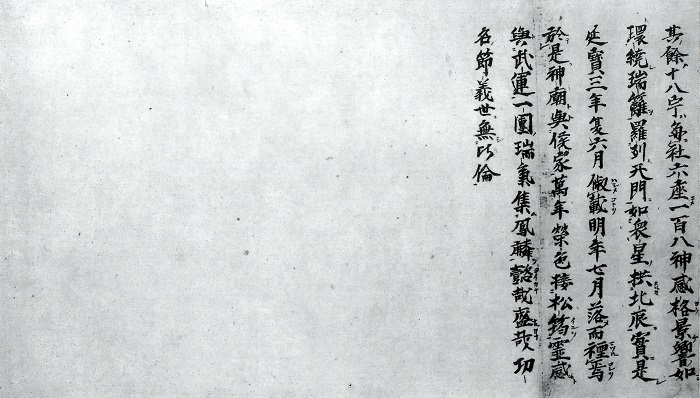 其餘十八宇每社六座一百八神感格景響如
環繞瑞籬羅列天門如衆星拱北辰實是
延寶三年夏六月俶載明年七月落而禋焉
於是神廟與侯家萬年榮色接松筠靈感
與武運一團瑞氣集鳳麟懿哉盛哉功
名節義世無比倫